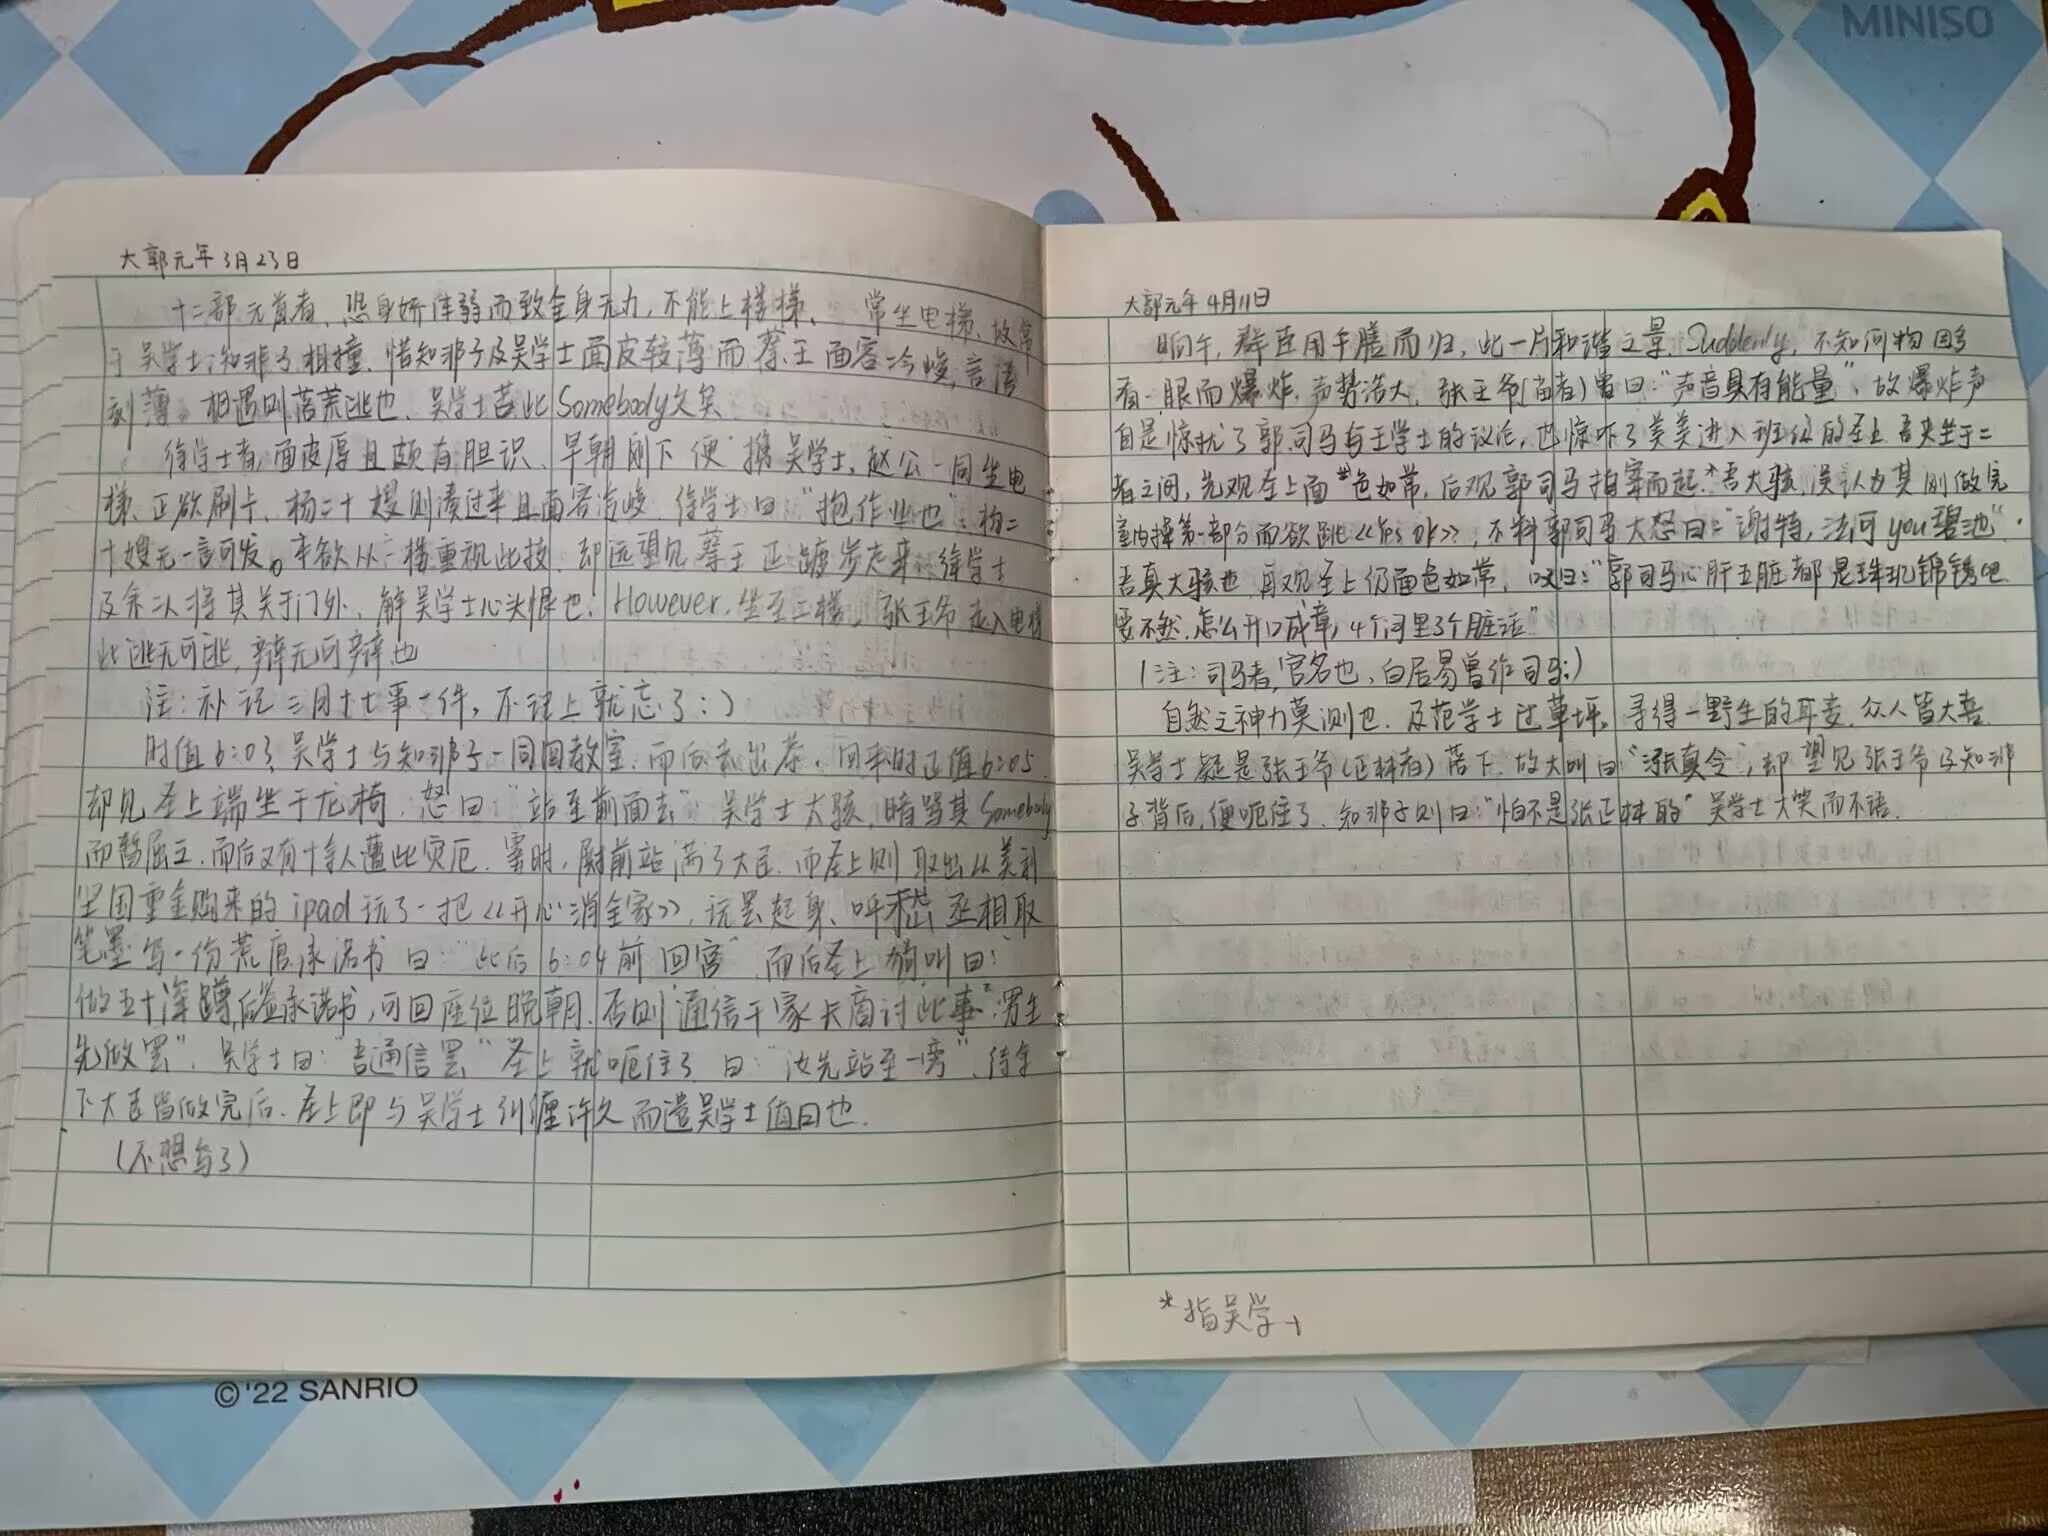 MINISO
大郭元年3月23日
十二部元首者、恐身娇体弱而致全身无力,不能上楼梯、常坐电梯、故常
于吴学士、知非子相撞.惜知非子及吴学士面皮较薄而蔡王面容冷峻,言语
刻薄 相遇则落荒逃也、吴学士苦此Somebody久矣
徐学士者,面皮厚且颇有胆识、早朝刚下便携吴学士,赵公一同坐电
梯、正欲刷卡、杨二十嫂则凑过来且面容冷峻、徐学士曰:"抱作业也",杨二
十嫂无一言可发。本欲从二楼重视此技、却远望见蔡王正踱步走来.徐学士
及余二人将其关于门外,解吴学士心头恨也. However.坐至三楼,张王爷走入电梯
此逃无可逃,辩无可辩也
注:补记三月十七事一件,不记上就忘了:)
时值6:03,吴学士与知非子一同回教室,而后去出恭,回来时正值6:05
却见圣上端坐于龙椅,怒曰:"站至前面去",吴学士大骇,暗骂其Somebody
而暂屈立.而后又有十余人遭此灾厄.霎时,殿前站满了大臣.而圣上则取出从美利
坚国重金购来的ipad玩了一把《开心消全家》,玩罢起身、呼嵇丞相取
笔墨写一份荒唐承诺书曰:"此后6:04前回宫",而后圣上狗叫曰:
做五十深蹲,后签承诺书,可回座位晚朝、否则通信于家长商讨此事",男生
先做罢".吴学士曰:"吾通信罢"圣上就呃住了.曰:"汝先站至一旁",待余
下大臣皆做完后、圣上即与吴学士纠缠许久而遣吴学士值日也.
(不想写了)
大郭元年4月11日
晌午,群臣用午膳而归,此一片和谐之景.Suddenly,不知何物因多
看一眼而爆炸,声势浩大,张王爷(苗者)曾曰:"声音具有能量",故爆炸声
自是惊扰了郭司马与王学士的议论,也惊吓了美美进入班级的圣上.吾夹坐于二
者之间,先观圣上面色如常,后观郭司马拍案而起.*吾大骇,误认为其刚做完
室内操第一部分而欲跳《Yes ok》,不料郭司马大怒曰:"谢特,法可you碧池".
吾真大骇也,再观圣上仍面色如常,叹曰:"郭司马心肝五脏都是珠玑锦绣吧
要不然.怎么开口成章,4个词里3个脏话"
(注:司马者,官名也、白居易曾作司马:)
自然之神力莫测也.及范学士过草坪,寻得一野生的耳麦.众人皆大喜.
吴学士疑是张王爷(正林者)落下.故大叫曰:"张真令",却望见张王爷于知非
子背后,便呃住了.知非子则曰:"怕不是张正林的"吴学士大笑而不语.
*指吴学士
©'22 SANRIO